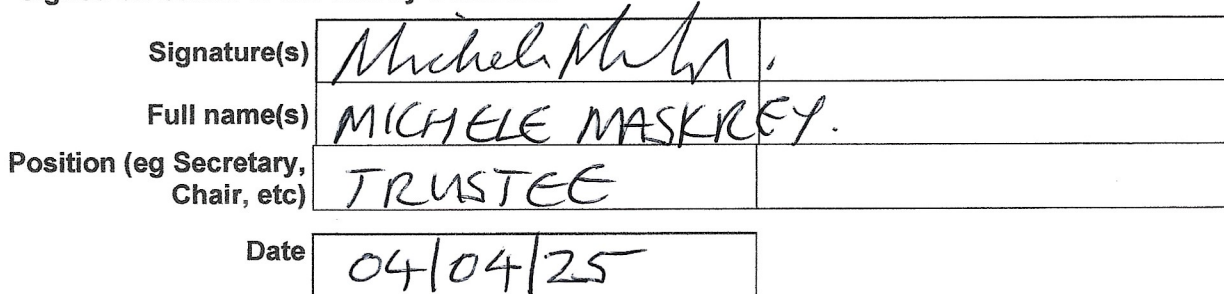 Signature(s)
Full name(s) MICHELE MASKREY.
Position (eg Secretary, Chair, etc) TRUSTEE
Date 04/04/25